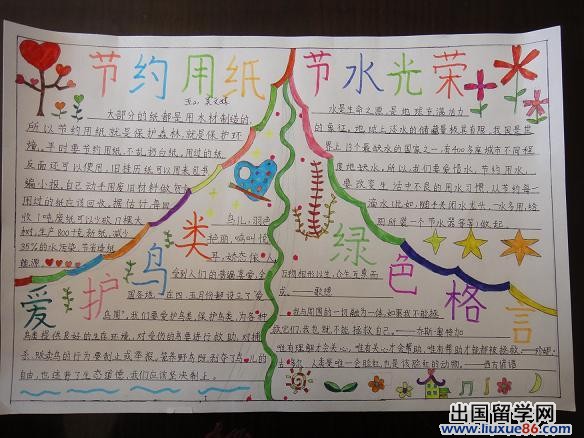 节约用纸
五.2
大部分的纸都是用木材制造的,
所以节约用纸就是保护森林,就是保护环
境,平时要节约用纸,不乱扔白纸,用过的纸
反面还可以使用,旧挂历纸可以用来包书
编小报,自己动手用废旧材料做贺
用过的纸应该回收,据估计,每回
收1吨废纸可以少砍17棵大
树,生产800千克新纸,减少
35%的水污染,节省能
能源
节水光荣
水是生命之源,是地球充满活力
的象征,地球上淡水的储藏量极其有限,我国是世
界上13个最缺水的国家之一,有400多座城市不同程
度地缺水,所以,我们要爱惜水,节约用水,
要改变生活中不良的用水习惯,从节约每一
滴水(比如,随手关闭水龙头,一水多用,给
厕所装一个节水器等等)做起。
爱护鸟类
鸟儿,羽色
艳丽,鸣叫悦
耳,姿态依人
受到人们的普遍喜爱,全
国各地,在四、五月份都设立了“爱
鸟周”,我们要爱护鸟类,保护鸟类,为各种
鸟类提供良好的生存环境,对受伤的鸟要进行救助,对捕
杀、贩卖鸟的行为要制止或举报,
自由,也违背了生态道德,我们应该坚决制止。
绿色格言
万物相形以生,众生互惠而
成。——歌德
我与周围的一切融为一体,如果我不能拯
救它们,我也就不能拯救自己。——
唯有理解才会关心,唯有关心才会帮助,唯有帮助才能都被拯救。——珍妮·
古多尔
人类是唯一会脸红,也是该脸红的动物。——西方谚语
出国留学网
www.liuxue86.com